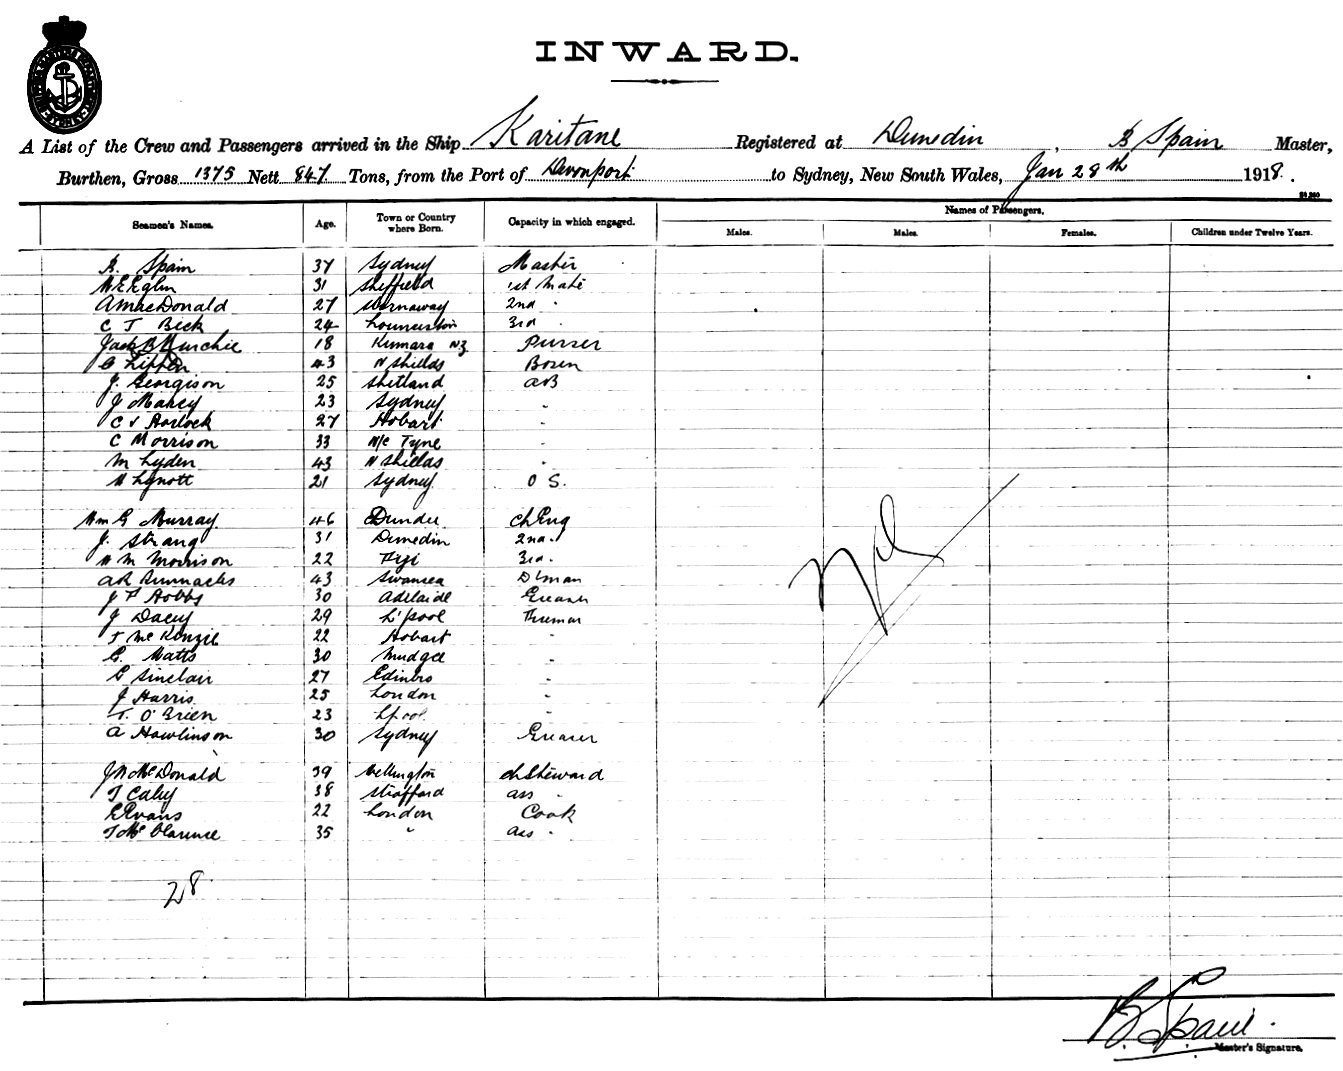 INWARD.
A List of the Crew and Passengers arrived in the Ship Karitane Registered at Dunedin, B Spain Master,
Burthen, Gross 1375 Nett 847 Tons, from the Port of Devonport to Sydney, New South Wales, Jan 28th 1918.
Names of Passengers.
Seamen's Names. Age. Town or Country where Born. Capacity in which engaged. Males. Males. Females. Children under Twelve Years.
B. Spain 37 Sydney Master
31 Sheffield 1st Mate
A MacDonald 27 Stornaway 2nd "
C J Beck 24 Launceston 3rd "
Jack B Murchie 18 Kumara NZ Purser
43 N Shields Bosen
J. Georgison 25 Shetland AB
J Makey 23 Sydney "
C V Horlock 27 Hobart "
C Morrison 33 N/C Tyne "
M Lyden 43 N Shields "
H Lynott 21 Sydney O S.
Wm G Murray 46 Dundee Ch Eng
J. Strang 31 Dunedin 2nd "
W M Morrison 22 Fiji 3rd "
43 Swansea D'man
J F Hobbs 30 Adelaide Greaser
J Dacey 29 L'pool Fireman
J McKenzie 22 Hobart "
G. Watts 30 Mudgee "
G Sinclair 27 Edinbro "
J Harris 25 London "
T. O'Brien 23 Lpool "
A Hawlinson 30 Sydney Greaser
J W McDonald 39 Wellington Ch Steward
T Caley 38 Stratford ass "
E Evans 22 London Cook
J McClarence 35 " ass "
Nil
28
B. Spain.
Master's Signature.